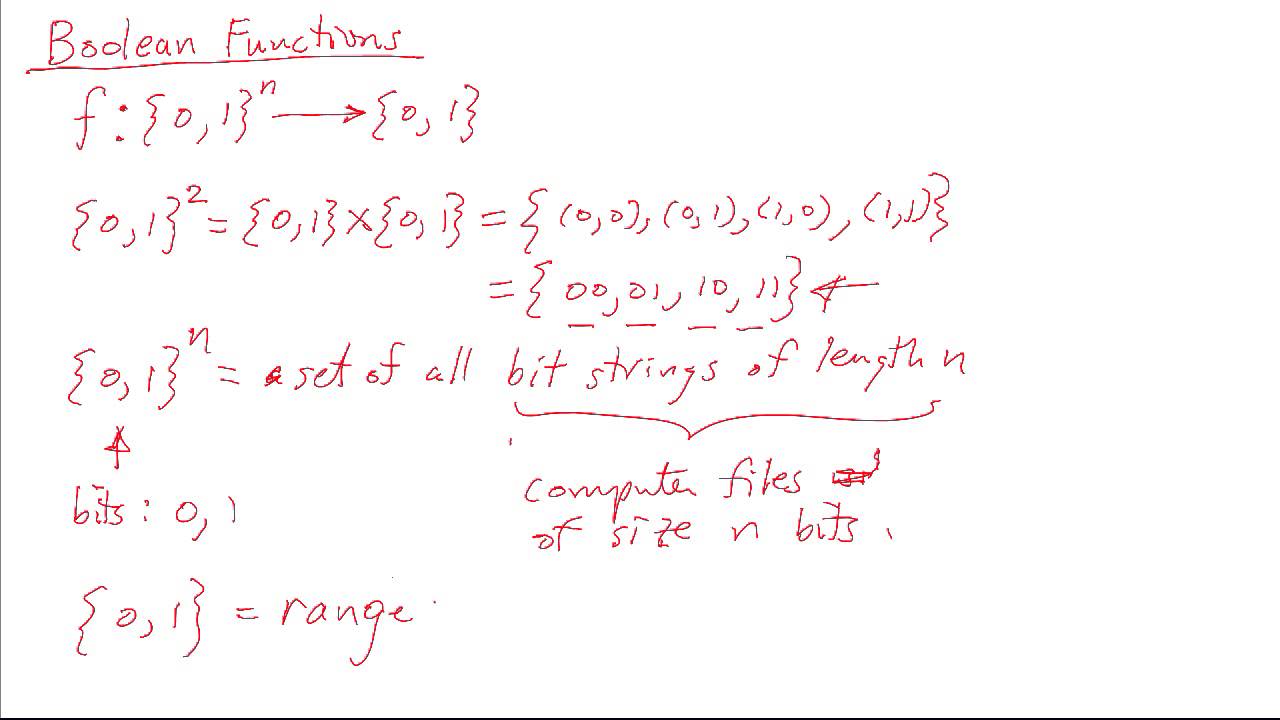 Boolean Functions
f : {0, 1}ⁿ ⟶ {0, 1}
{0, 1}² = {0, 1} × {0, 1} = { (0,0), (0,1), (1,0), (1,1) }
= { 00, 01, 10, 11 } ←
{0, 1}ⁿ = set of all bit strings of length n
↑
bits : 0, 1
computer files
of size n bits .
{0, 1} = range .